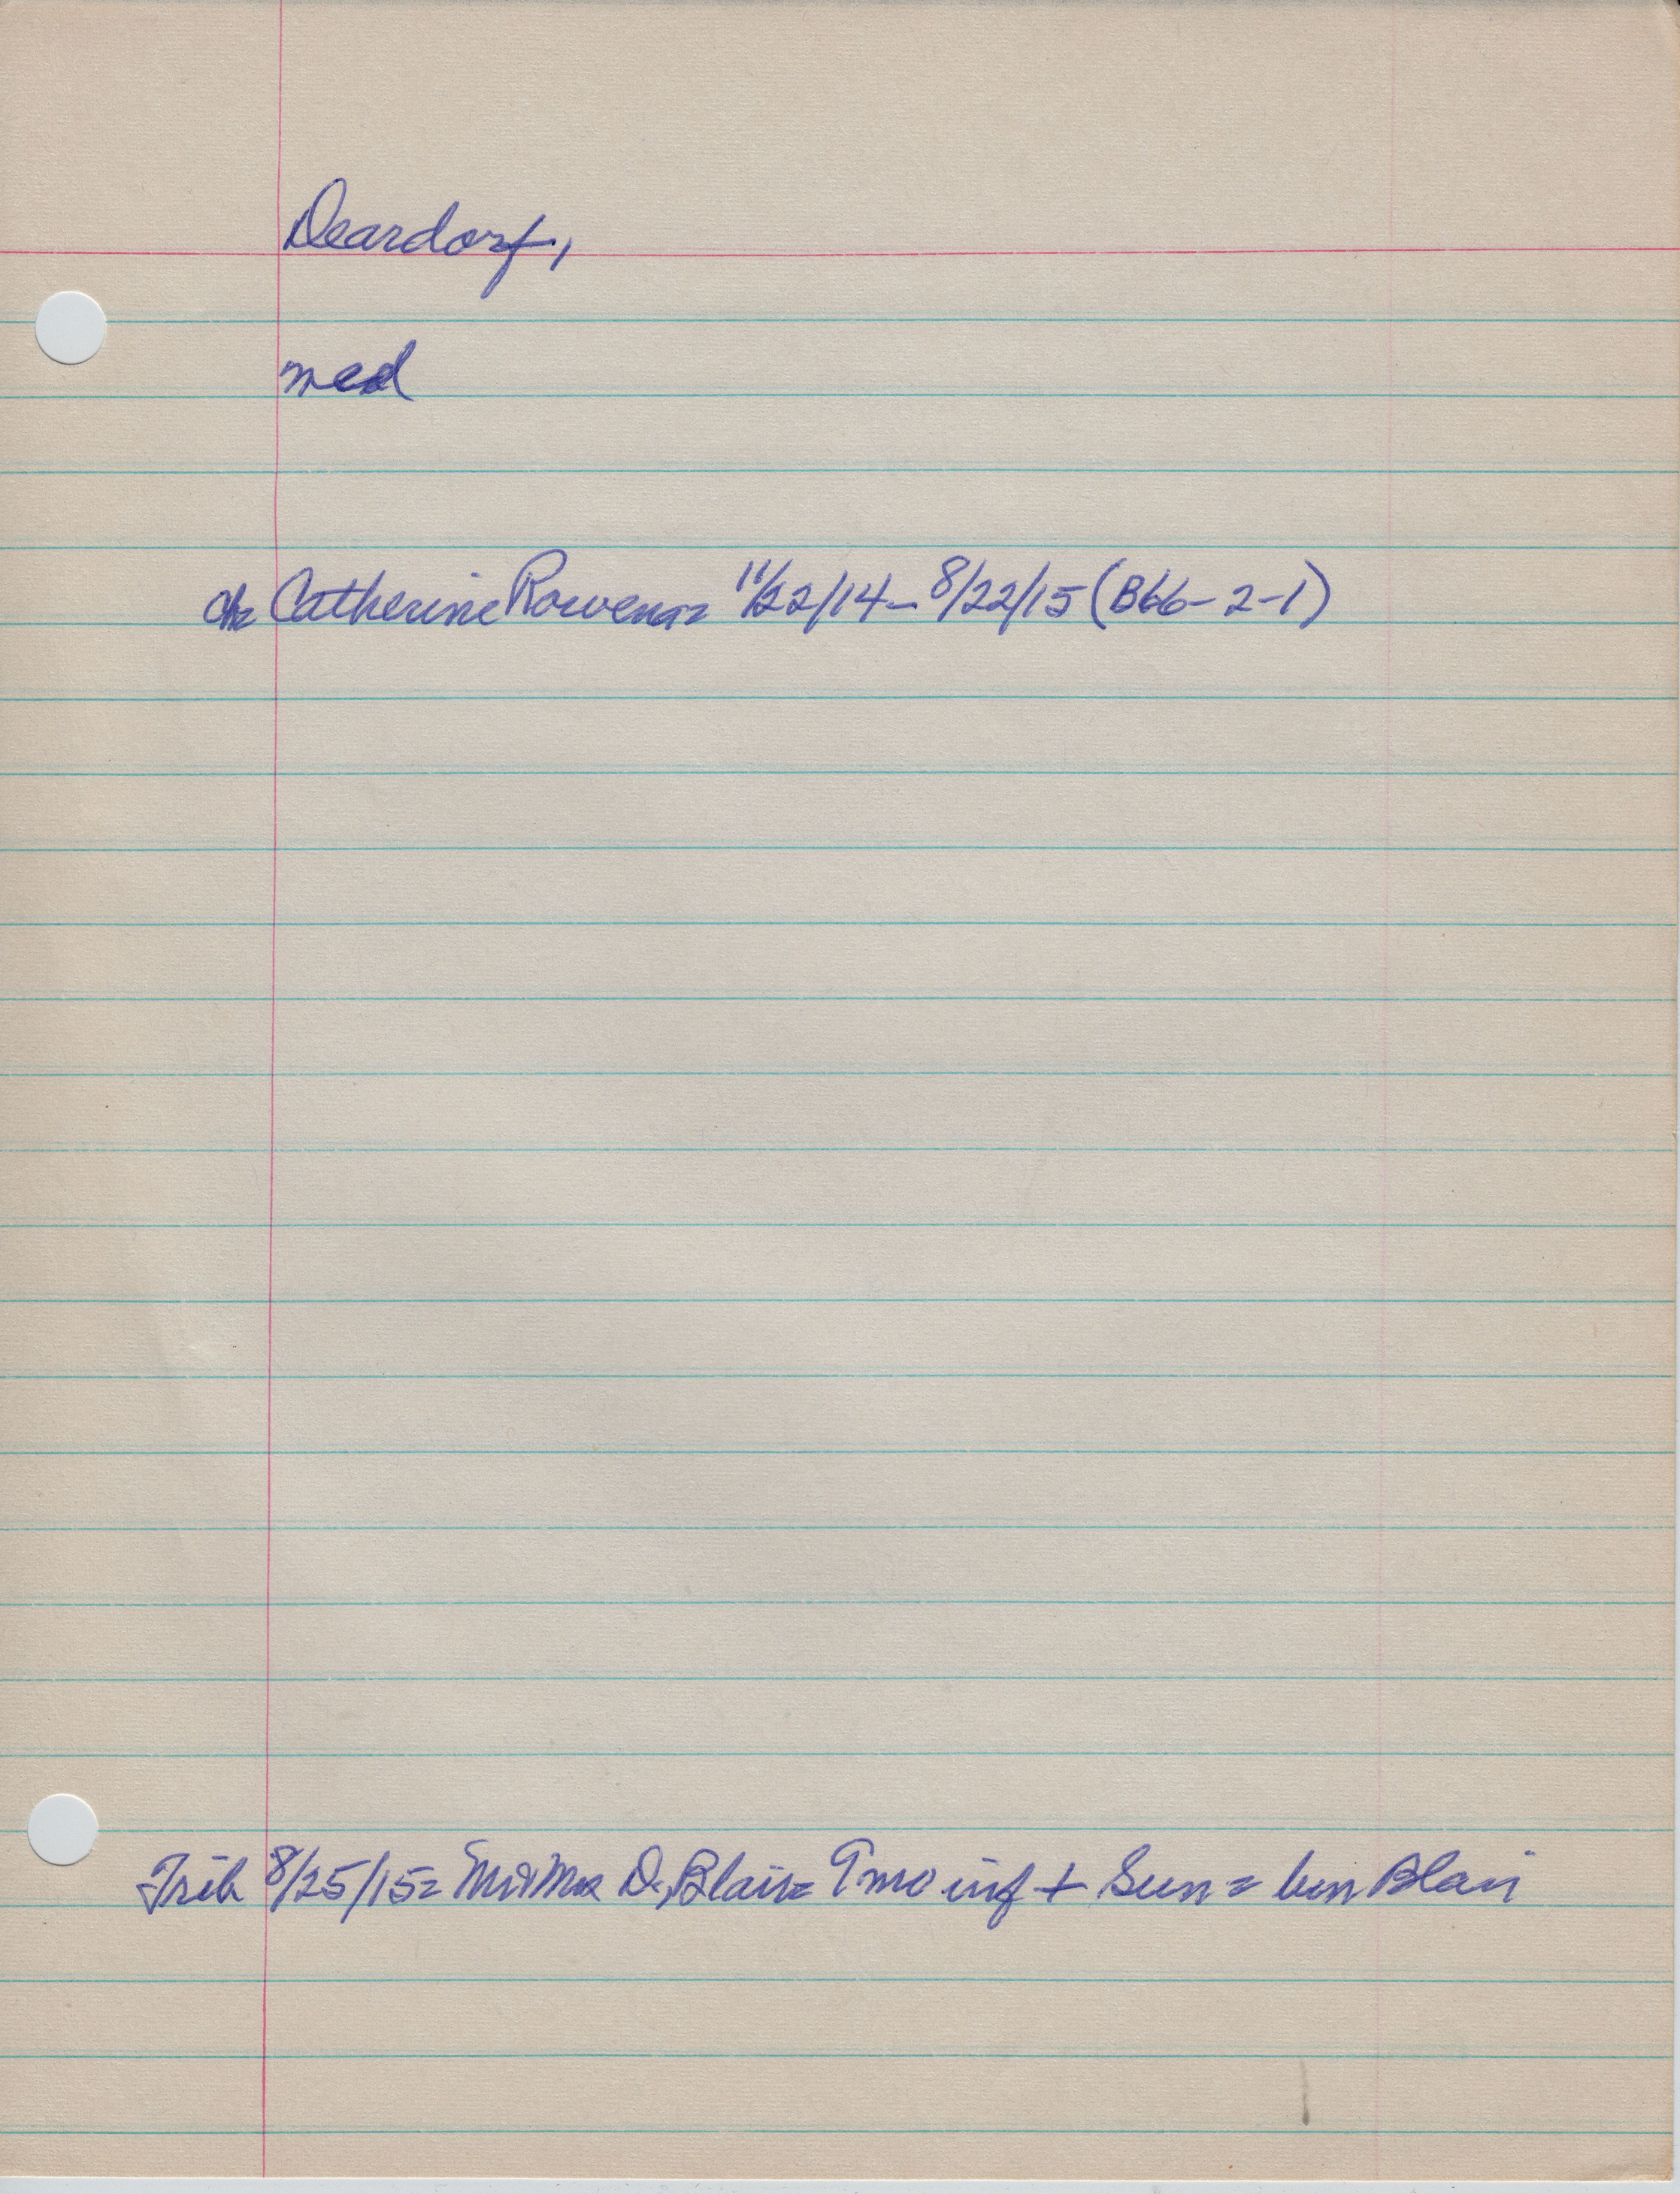 Deardorf,
med
ch= Catherine Rowena= 11/22/14-8/22/15 (B66-2-1)
Trib 8/25/15= Mr&Mrs D., Blair= 9mo inf + Sun= bur Blair